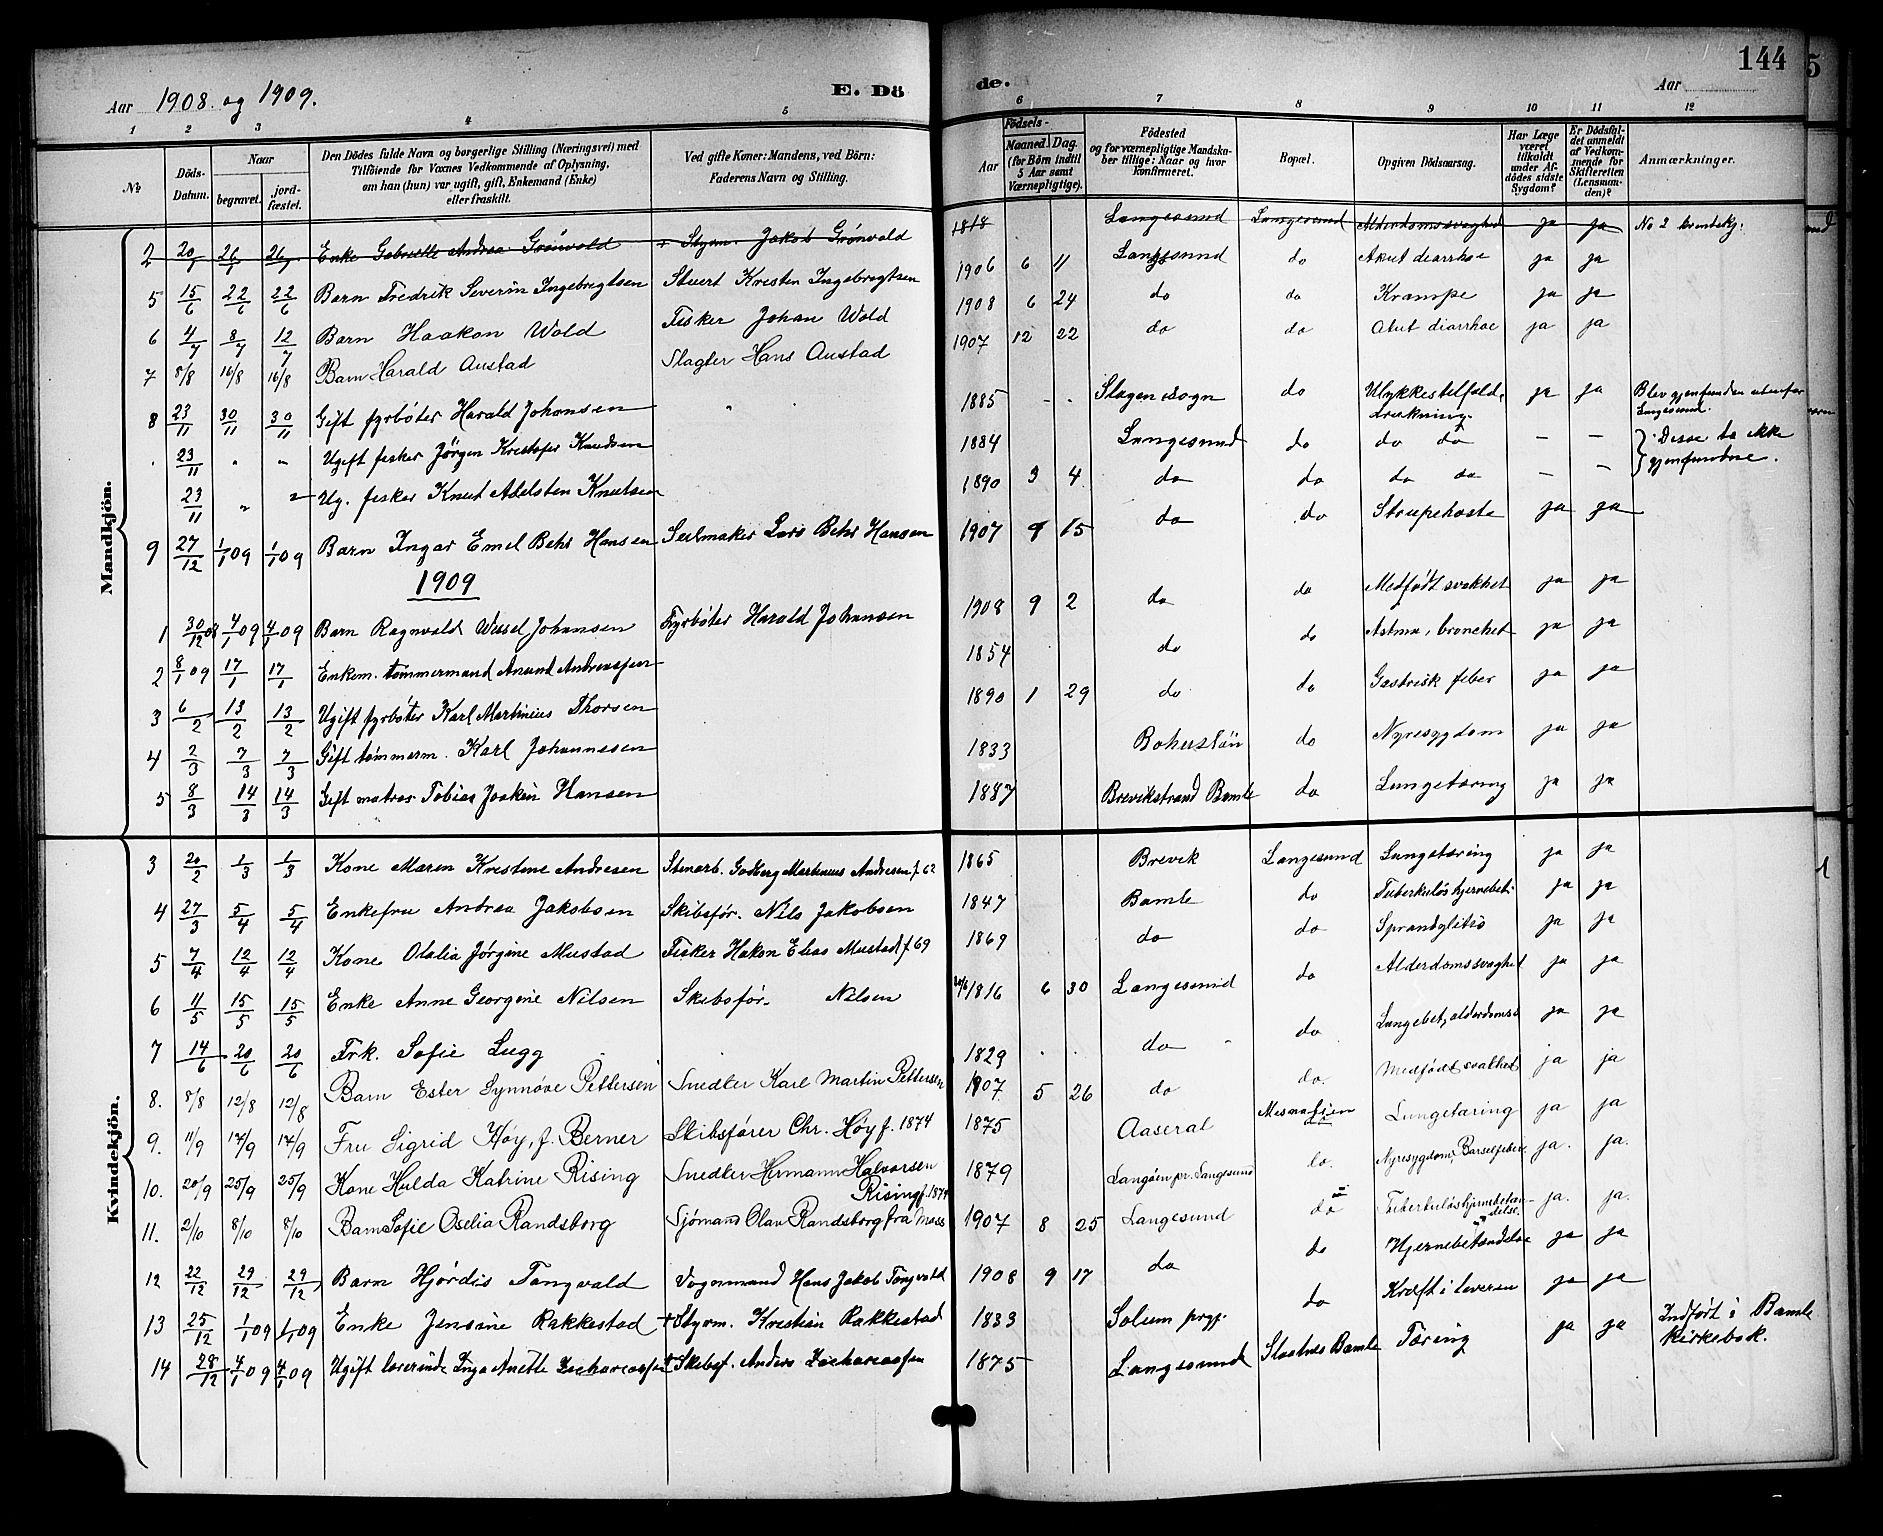 144
5
Aar 1908. og 1909.
E. Dö
de.
Aar
1 2 3 4 5 6 7 8 9 10 11 12
№
Döds-Datum.
Naar
begravet.
jord-fæstet.
Den Dödes fulde Navn og borgerlige Stilling (Næringsvei) med
Tilföiende for Voxnes Vedkommende af Oplysning,
om han (hun) var ugift, gift, Enkemand (Enke)
eller fraskilt.
Ved gifte Koner: Mandens, ved Börn:
Faderens Navn og Stilling.
Födsels-
Aar
Maaned. Dag.
(for Börn indtil
5 Aar samt
Værnepligtige).
Födested
og for værnepligtige Mandska-
ber tillige: Naar og hvor
konfirmeret.
Bopæl.
Opgiven Dödsaarsag.
Har Læge
været
tilkaldt
under Af-
dödes sidste
Sygdom?
Er Dödsfal-
det anmeldt
af Vedkom-
mende for
Skifteretten
(Lensman-
den)?
Anmærkninger.
Mandkjön.
2 20/1 26/1 26/1 Enke Gabrielle Andrea Grönvold + Styrm. Jakob Grönvold 1818 Langesund Langesund Alderdomssvaghed ja ja No 2 kvindekj.
5 15/6 22/6 22/6 Barn Fredrik Severin Ingebregtsen Stuert Kresten Ingebregtsen 1906 6 11 Langesund do Akut diarrhoe ja ja
6 4/7 8/7 12/7 Barn Haakon Wold Fisker Johan Wold 1908 6 24 do do Krampe ja ja
7 8/8 16/8 16/8 Barn Harald Austad Slagter Hans Austad 1907 12 22 do do Akut diarrhoe ja ja
8 23/11 30/11 30/11 Gift fyrböter Harald Johansen " 1885 - - Slagen sogn do Ulykkestilfeld, drukning. ja ja Blev gjenfunden utenfor Langesund.
. 23/11 " " Ugift fisker Jörgen Kristofer Knudsen 1884 Langesund do do do - - } Disse to ikke
23/11 " " Ug. fisker Knut Adelsten Knutsen 1890 3 4 do do do do - - } gjenfundne.
9 27/12 1/1 09 1/1 09 Barn Ingar Emel Behr Hansen Seilmaker Lars Behr Hansen 1907 9 15 do do Strupehoste ja ja
1909
1 30/12 08 4/1 09 4/1 09 Barn Ragnvald Wessel Johansen Fyrböter Harald Johansen 1908 9 2 do do Medfödt svakhet ja ja
2 8/1 09 17/1 17/1 Enkem. tömmermand Anund Andreassen 1854 do do Astma, bronchit ja ja
3 6/2 13/2 13/2 Ugift fyrböter Karl Martinius Thorsen 1890 1 29 do do Gastrisk feber ja ja
4 2/3 7/3 7/3 Gift tömmerm. Karl Johannesen 1833 Bohuslän do Nyresygdom ja ja
5 8/3 14/3 14/3 Gift matros Tobias Joakim Hansen 1887 Brevikstrand Bamle do Lungetæring ja ja
Kvindekjön.
3 20/2 1/3 1/3 Kone Maren Kristine Andresen Stenarb. Godberg Martinius Andresen f. 62 1865 Brevik Langesund Lungetæring ja ja
4 27/3 5/4 5/4 Enkefru Andrea Jakobsen Skibsför. Nils Jakobsen 1847 Bamle do Tuberkulös hjernebet. ja ja
5 7/4 12/4 12/4 Kone Olalia Jörgine Mustad Fisker Hakon Elias Mustad f. 69 1869 do do ja ja
6 11/5 15/5 15/5 Enke Anne Georgine Nilsen Skibsför. Nilsen 1816 6 30 Langesund do Alderdomssvaghet ja ja
7 14/6 20/6 20/6 Frk. Sofie Lugg 1829 . . do do Lungebet, alderdomss. ja ja
8. 8/8 12/8 12/8 Barn Ester Synnöve Pettersen Snedker Karl Martin Pettersen 1907 5 26 do do. Medfödt svakhet ja ja
9. 11/9 17/9 17/9 Fru Sigrid Höy, f. Berner Skibsförer Chr. Höy f. 1874 1875 Aaseral Lungetæring ja ja
10. 20/9 25/9 25/9 Kone Hulda Katrine Rising Snedker Hermann Halvorsen Rising f. 1874 1879 Langöen pr. Langesund do. Nyresygdom, Barselfeber. ja. ja.
11. 2/10 8/10 8/10 Barn Sofie Oselia Randsborg Sjömand Olav Randsborg fra Moss 1907 8 25 Langesund do Tuberkulös hjernebetændelse. ja. ja.
12 22/12 29/12 29/12 Barn Hjördis Tangvald Vognmand Hans Jakob Tangvald 1908 9 17 do do Hjernebetændelse ja ja
13 25/12 1/1 09 1/1 09 Enke Jensine Rakkestad + Styrm. Kristian Rakkestad 1833 Solum prgj. do Kræft i leveren ja ja
14 28/12 4/1 09 4/1 09 Ugift lærerinde Inga Anette Zachariassen + Skibsf. Anders Zachariassen 1875 Langesund Bamle Tæring ja ja Indfört i Bamle kirkebok.